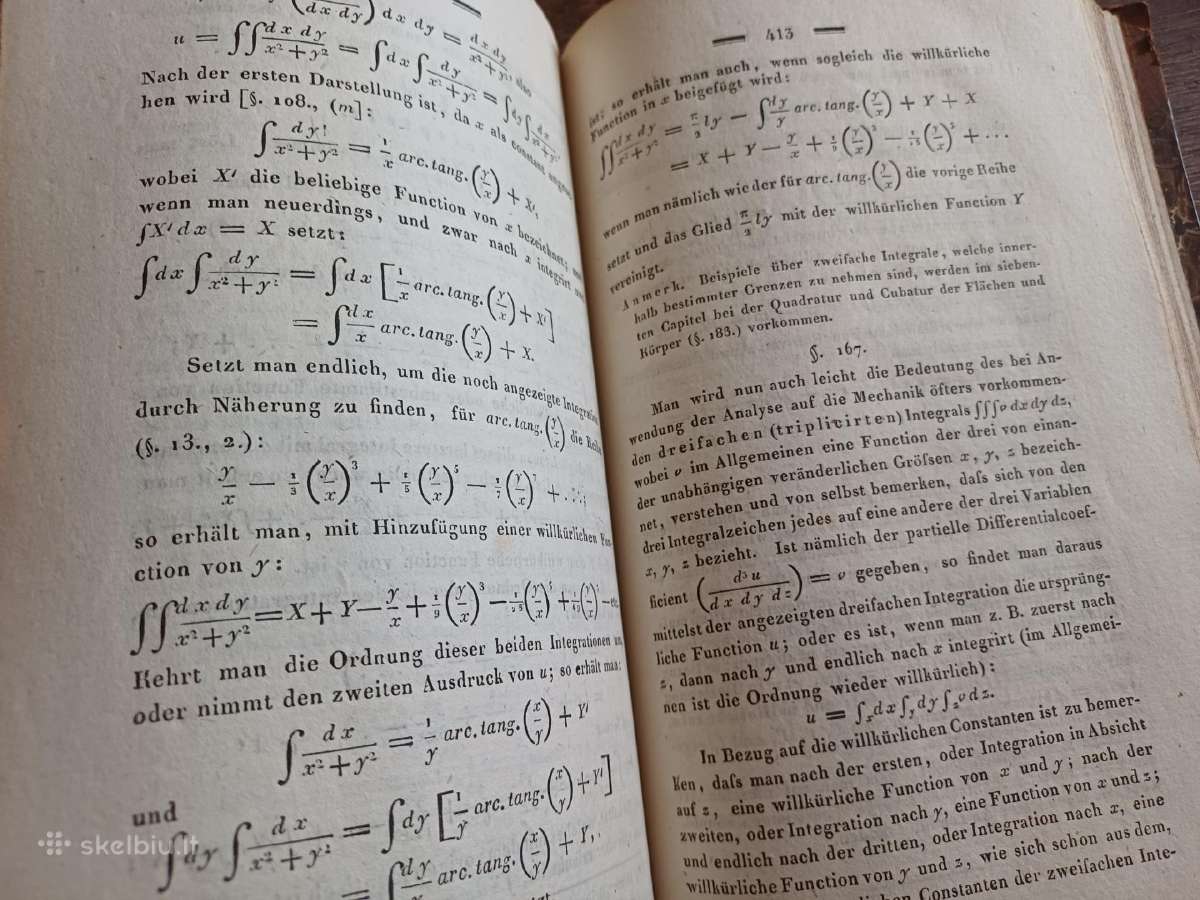 (dx dy) dx dy = dx dy / x² + y², also
u = ∫∫ dx dy / x² + y² = ∫dx ∫ dy / x² + y² = ∫dy ∫ dx / x² + y².
Nach der ersten Darstellung ist, da x als constant
hen wird [§. 108., (m]:
∫ dy! / x² + y² = 1/x arc. tang. (y/x) + X',
wobei X' die beliebige Function von x bezeichnet;
wenn man neuerdings, und zwar nach x integrirt
∫X' dx = X setzt:
∫dx ∫ dy / x² + y² = ∫dx [1/x arc. tang. (y/x) + X']
= ∫ dx/x arc. tang. (y/x) + X.
Setzt man endlich, um die noch angezeigte Integration
durch Näherung zu finden, für arc. tang. (y/x) die Reihe
(§. 13., 2.):
y/x — 1/3 (y/x)³ + 1/5 (y/x)⁵ — 1/7 (y/x)⁷ + ...;
so erhält man, mit Hinzufügung einer willkürlichen Fun-
ction von y:
∫∫ dx dy / x² + y² = X + Y — y/x + 1/9 (y/x)³ — 1/25 (y/x)⁵ + 1/49 (y/x)⁷ — etc.
Kehrt man die Ordnung dieser beiden Integrationen um,
oder nimmt den zweiten Ausdruck von u; so erhält man:
∫ dx / x² + y² = 1/y arc. tang. (x/y) + Y'
und
∫dy ∫ dx / x² + y² = ∫dy [1/y arc. tang. (x/y) + Y']
= ∫ dy/y arc. tang. (x/y) + Y,
skelbiu.lt
413
ist: so erhält man auch, wenn sogleich die willkürliche
Function in x beigefügt wird:
∫∫ dx dy / x² + y² = π/2 ly — ∫ dy/y arc. tang. (y/x) + Y + X
= X + Y — y/x + 1/9 (y/x)³ — 1/25 (y/x)⁵ + ...
wenn man nämlich wieder für arc. tang. (y/x) die vorige Reihe
setzt und das Glied π/2 ly mit der willkürlichen Function Y
vereinigt.
Anmerk. Beispiele über zweifache Integrale, welche inner-
halb bestimmter Grenzen zu nehmen sind, werden im sieben-
ten Capitel bei der Quadratur und Cubatur der Flächen und
Körper (§. 183.) vorkommen.
§. 167.
Man wird nun auch leicht die Bedeutung des bei An-
wendung der Analyse auf die Mechanik öfters vorkommen-
den dreifachen (triplicirten) Integrals ∫∫∫ v dx dy dz,
wobei v im Allgemeinen eine Function der drei von einan-
der unabhängigen veränderlichen Gröſsen x, y, z bezeich-
net, verstehen und von selbst bemerken, daſs sich von den
drei Integralzeichen jedes auf eine andere der drei Variablen
x, y, z bezieht. Ist nämlich der partielle Differentialcoef-
ficient (d³u / dx dy dz) = v gegeben, so findet man daraus
mittelst der angezeigten dreifachen Integration die ursprüng-
liche Function u; oder es ist, wenn man z. B. zuerst nach
z, dann nach y und endlich nach x integrirt (im Allgemei-
nen ist die Ordnung wieder willkürlich):
u = ∫ₓdx∫ᵧdy∫_z v dz.
In Bezug auf die willkürlichen Constanten ist zu bemer-
ken, daſs man nach der ersten, oder Integration in Absicht
auf z, eine willkürliche Function von x und y; nach der
zweiten, oder Integration nach y, eine Function von x und z;
und endlich nach der dritten, oder Integration nach x, eine
willkürliche Function von y und z, wie sich schon aus dem,
Constanten der zweifachen Inte-